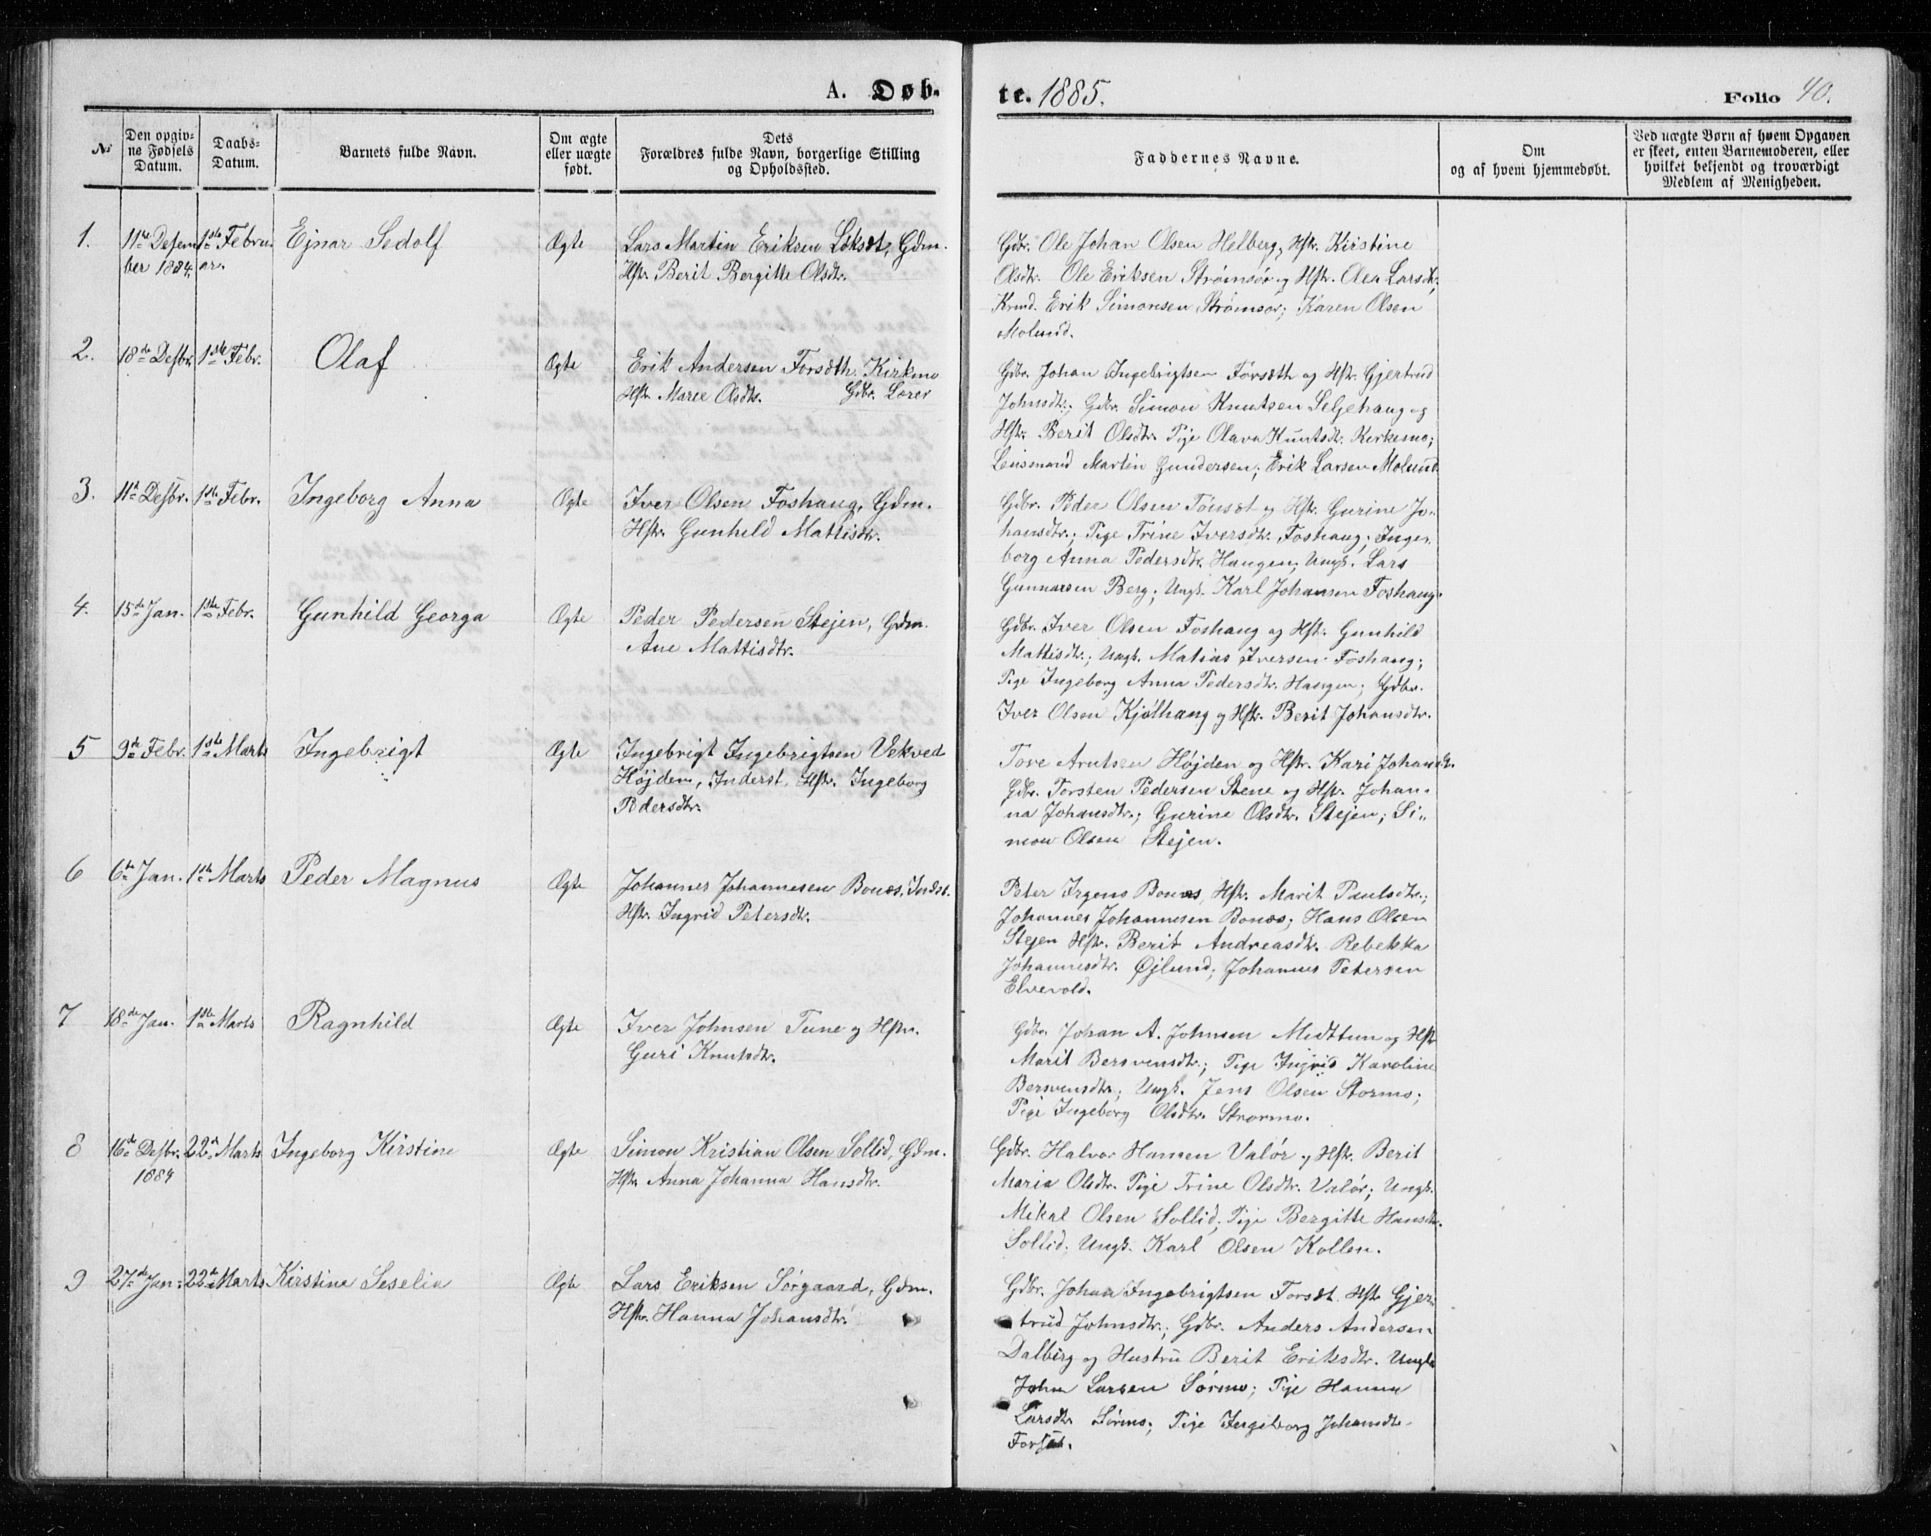 A. Døb-
te. 1885.
Folio 40.
№
Den opgiv-
ne Fødsels
Datum.
Daabs-
Datum.
Barnets fulde Navn.
Om ægte
eller uægte
født.
Dets
Forældres fulde Navn, borgerlige Stilling
og Opholdssted.
Faddernes Navne.
Om
og af hvem hjemmedøbt.
Ved uægte Børn af hvem Opgaven
er skeet, enten Barnemoderen, eller
hvilket bekjendt og troværdigt
Medlem af Menigheden.
1. 11te Desem 1ste Febru Ejnar Sedolf Ægte Lars Martin Eriksen Løkset, Gdm.
ber 1884. ar. Hstr. Berit Bergitte Olsdtr.
Gdbr. Ole Johan Olsen Helberg, Hstr. Kirstine
Olsdtr. Ole Eriksen Strømsør og Hstr. Olea Larsdtr,
Kmd. Erik Simonsen Strømsør; Karen Olsen
Molund.
2. 18de Desbr. 1ste Febr. Olaf Ægte Erik Andersen Forsæth. Kirkmo
Hstr. Marie Olsdtr. Gdbr.
Gdbr. Johan Ingebrigtsen Forsæth og Hstr. Gjertrud
Johnsdtr; Gdbr. Simon Knutsen Seljehaug og
Hstr. Berit Olsdtr. Pige Olava Knutsdtr. Kirkemo;
Lensmand Martin Gundersen; Erik Larsen Molund.
3. 11te Desbr. 1ste Febr. Ingeborg Anna Ægte Iver Olsen Foshaug, Gdm.
Hstr. Gunhild Mattisdtr.
Gdbr. Peder Olsen Tønset og Hstr. Gurine Jo-
hansdtr.; Pige Trine Iversdtr. Foshaug; Inge-
borg Anna Pedersdtr. Haugen; Ungk. Lars
Gunnarsen Berg; Ungk. Karl Johansen Foshaug.
4. 15de Jan. 1ste Febr. Gunhild Georga Ægte Peder Pedersen Stejen, Gdm.
Ane Mattisdtr.
Gdbr. Iver Olsen Foshaug og Hstr. Gunhild
Mattisdtr.; Ungk. Matias Iversen Foshaug;
Pige Ingeborg Anna Pedersdtr. Haugen; Gdbr.
Iver Olsen Kjølhaug og Hstr. Berit Johansdtr.
5 9de Febr. 1ste Marts Ingebrigt Ægte Ingebrigt Ingebrigtsen Vekved
Højden, Inderst, Hstr. Ingeborg
Pedersdtr.
Tore Arntsen Højden og Hstr. Kari Johansdtr.
Gdbr. Torsten Pedersen Stene og Hstr. Johan-
na Johansdtr.; Gurine Olsdtr. Stejen; Si-
mon Olsen Stejen.
6 6te Jan. 1ste Marts Peder Magnus Ægte Johannes Johannesen Bonæs, Indst.
Hstr. Ingrid Petersdtr.
Peter Irgens Bonæs, Hstr. Marit Paulsdtr.;
Johannes Johannesen Bonæs; Hans Olsen
Stejen Hstr. Berit Andreasdtr. Rebekka
Johannesdtr. Øjlund; Johannes Petersen
Elvevold.
7 18de Jan. 1ste Marts Ragnhild Ægte Iver Johnsen Tune og Hstr.
Guri Knutsdtr.
Gdbr. Johan A. Johnsen Midttun og Hstr
Marit Bersvensdtr.; Pige Ingrid Karoline
Bersvensdtr; Ungk. Jens Olsen Stormo;
Pige Ingeborg Olsdtr. Stormo.
8 16de Desbr. 22de Marts Ingeborg Kirstine Ægte Simon Kristian Olsen Sollid, Gdm.
1884 Hstr. Anna Johanna Hansdtr.
Gdbr. Halvor Hansen Valør og Hstr. Berit
Maria Olsdtr. Pige Trine Olsdtr. Valør; Ungk.
Mikal Olsen Sollid; Pige Bergitte Hansdtr.
Sollid. Ungk. Karl Olsen Kollen.
9 27de Jan. 22de Marts Kirstine Seselia Ægte Lars Eriksen Sørgaard, Gdm.
Hstr. Hanna Johansdtr.
Gdbr. Johan Ingebrigtsen Forset Hstr Gjer-
trud Johnsdtr.; Gdbr. Anders Andersen
Dalberg og Hustru Berit Eriksdtr. Ungk.
John Larsen Sørmo; Pige Hanna
Larsdtr Sørmo; Pige Ingeborg Johansdtr.
Forset.